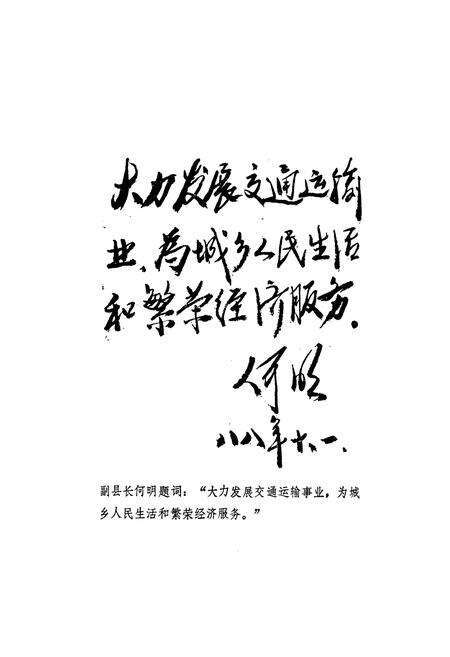 大力发展交通运输
业、为城乡人民生活
和繁荣经济服务.
何明
八八年六.一.
副县长何明题词：“大力发展交通运输事业，为城
乡人民生活和繁荣经济服务。”